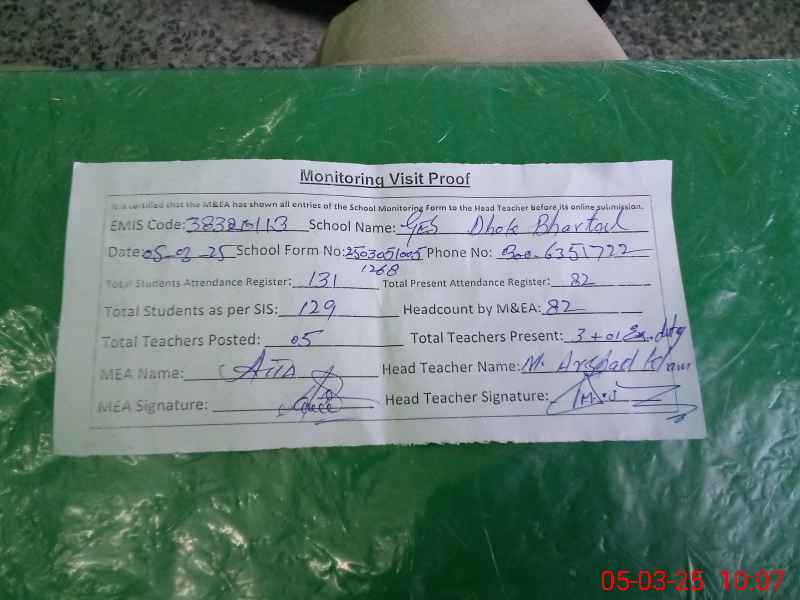 Monitoring Visit Proof
It is certified that the M&EA has shown all entries of the School Monitoring Form to the Head Teacher before its online submission.
EMIS Code: School Name: GES Dhok
Date: 05-03-25 School Form No: 2503051005 1268 Phone No: 300-6351722
Total Students Attendance Register: 131 Total Present Attendance Register: 82
Total Students as per SIS: 129 Headcount by M&EA: 82
Total Teachers Posted: 05 Total Teachers Present: 3 + 01 Ex. duty
MEA Name: Head Teacher Name: M. Arshad Khan
MEA Signature: Head Teacher Signature:
05-03-25 10:07